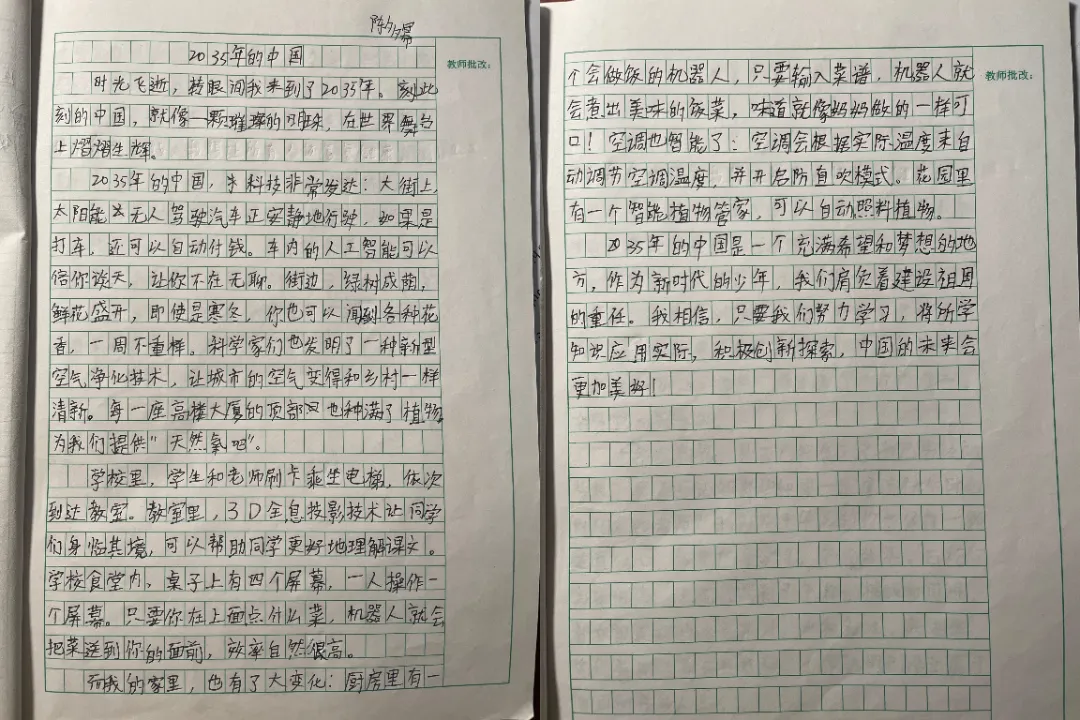 陈夕幂
2035年的中国
教师批改:
时光飞逝，转眼间我来到了2035年。刻此
刻的中国，就像一颗璀璨的明珠，在世界舞台
上熠熠生辉。
2035年的中国，科技非常发达：大街上，
太阳能无人驾驶汽车正安静地行驶，如果是
打车，还可以自动付钱。车内的人工智能可以
倍你谈天，让你不在无聊。街边，绿树成荫，
鲜花盛开，即使是寒冬，你也可以闻到各种花
香，一周不重样。科学家们也发明了一种新型
空气净化技术，让城市的空气变得和乡村一样
清新。每一座高楼大厦的顶部也种满了植物
为我们提供"天然氧吧"。
学校里，学生和老师刷卡乘坐电梯，依次
到达教室。教室里，3D全息投影技术让同学
们身临其境，可以帮助同学更好地理解课文。
学校食堂内，桌子上有四个屏幕，一人操作一
个屏幕。只要你在上面点什么菜，机器人就会
把菜送到你的面前，效率自然很高。
而我的家里，也有了大变化：厨房里有一
教师批改:
个会做饭的机器人，只要输入菜谱，机器人就
会煮出美味的饭菜，味道就像妈妈做的一样可
口！空调也智能了：空调会根据实际温度来自
动调节空调温度，并开启防直吹模式。花园里
有一个智能植物管家，可以自动照料植物。
2035年的中国是一个充满希望和梦想的地
方，作为新时代的少年，我们肩负着建设祖国
的重任。我相信，只要我们努力学习，将所学
知识应用实际，积极创新探索，中国的未来会
更加美好！